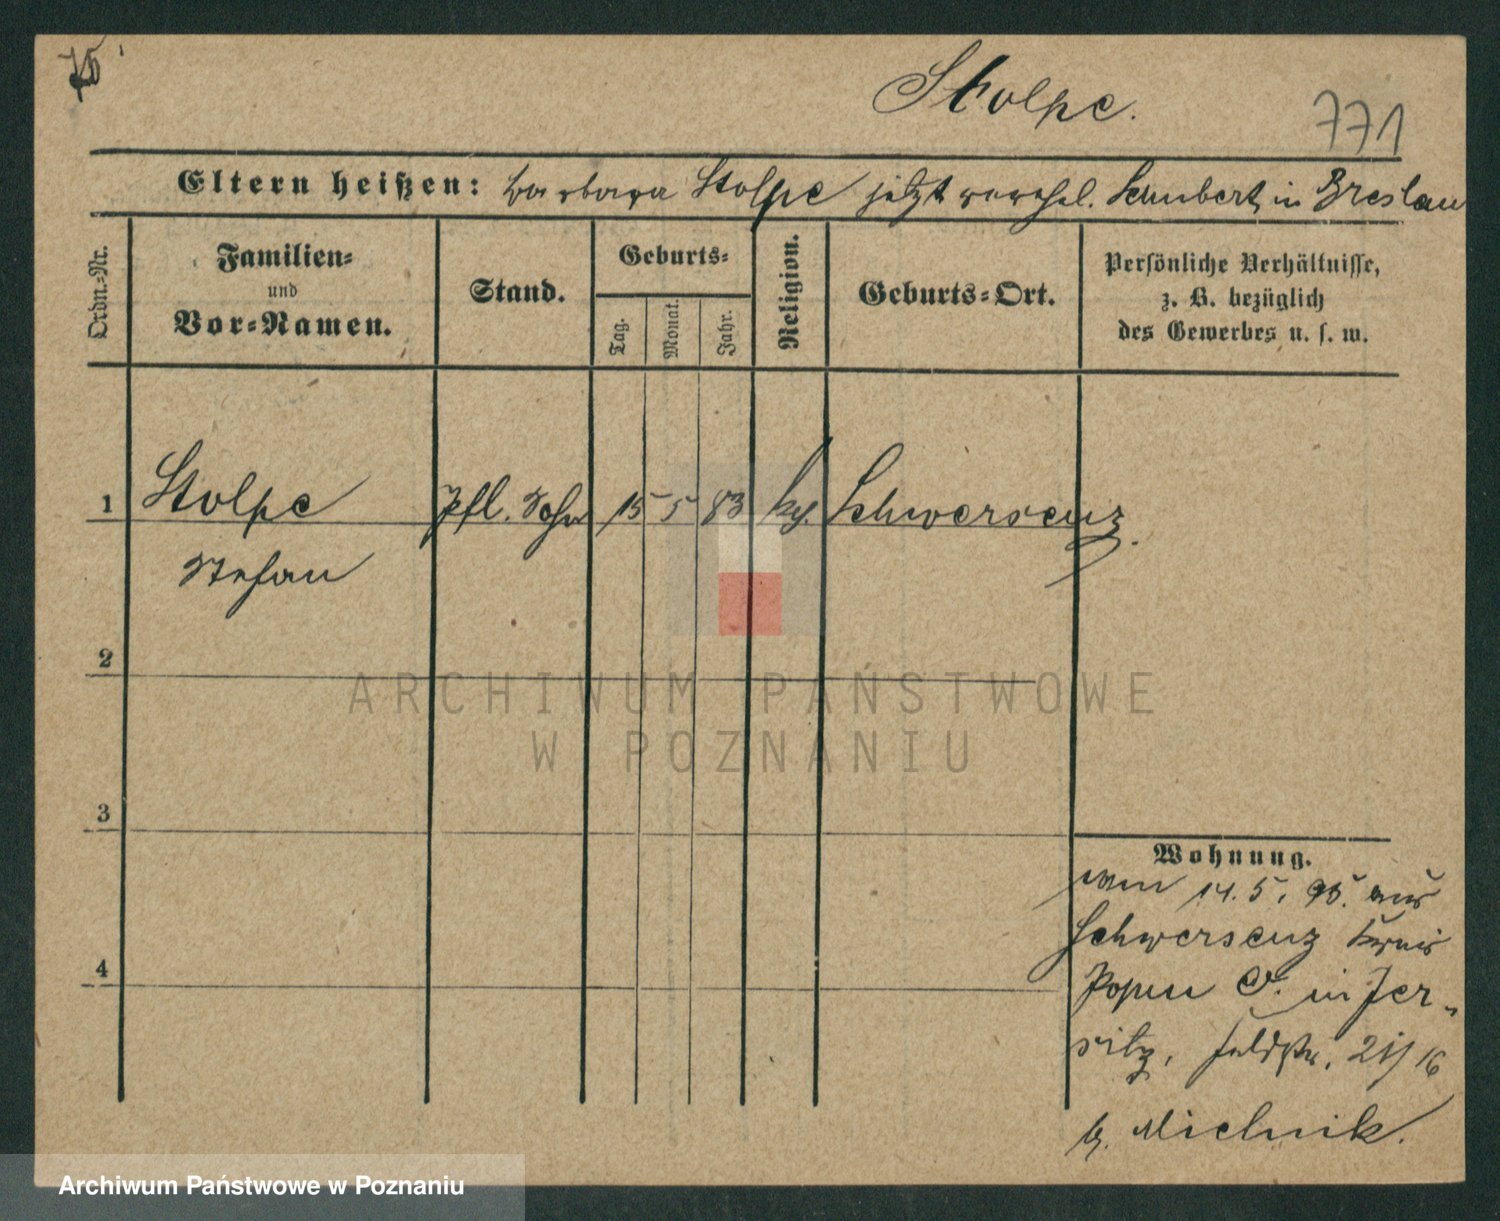 Stolpe.
771
Eltern heißen: Barbara Stolpe jetzt verehel. Schubert in Breslau
Ordn.-Nr.
Familien-
und
Vor-Namen.
Stand.
Geburts-
Tag.
Monat.
Jahr.
Religion.
Geburts-Ort.
Persönliche Verhältnisse,
z. B. bezüglich
des Gewerbes u. s. w.
1 Stolpe Pfl. Sohn 15 5 83 Schwersenz.
Stefan
2
3
4
Wohnung.
14. 5. 95. aus
Schwersenz Kreis
Posen O. in Jer-
sitz, Feldstr. 21/16
b. Mielnik.
ARCHIWUM PAŃSTWOWE
W POZNANIU
Archiwum Państwowe w Poznaniu